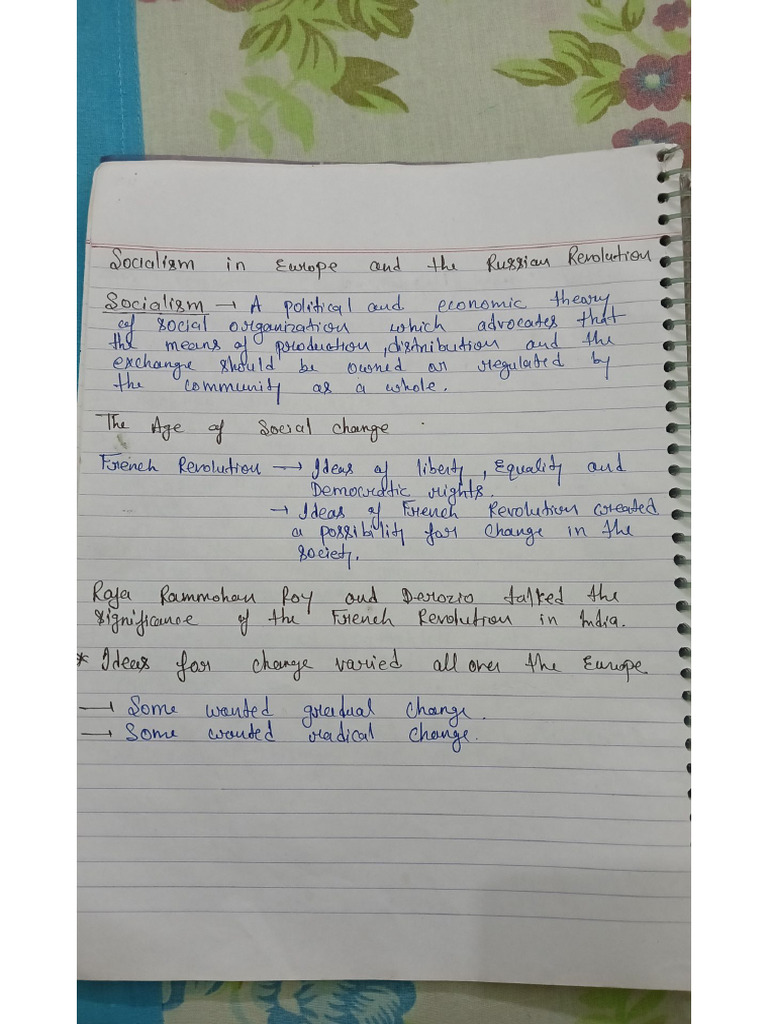 Socialism in Europe and the Russian Revolution
Socialism → A political and economic theory
of social organization which advocates that
the means of production, distribution and the
exchange should be owned or regulated by
the community as a whole.
The Age of Social change
French Revolution → Ideas of liberty, Equality and
Democratic rights.
→ Ideas of French Revolution created
a possibility for change in the
society.
Raja Rammohan Roy and Derozio talked the
significance of the French Revolution in India.
* Ideas for change varied all over the Europe
→ Some wanted gradual change.
→ Some wanted radical change.